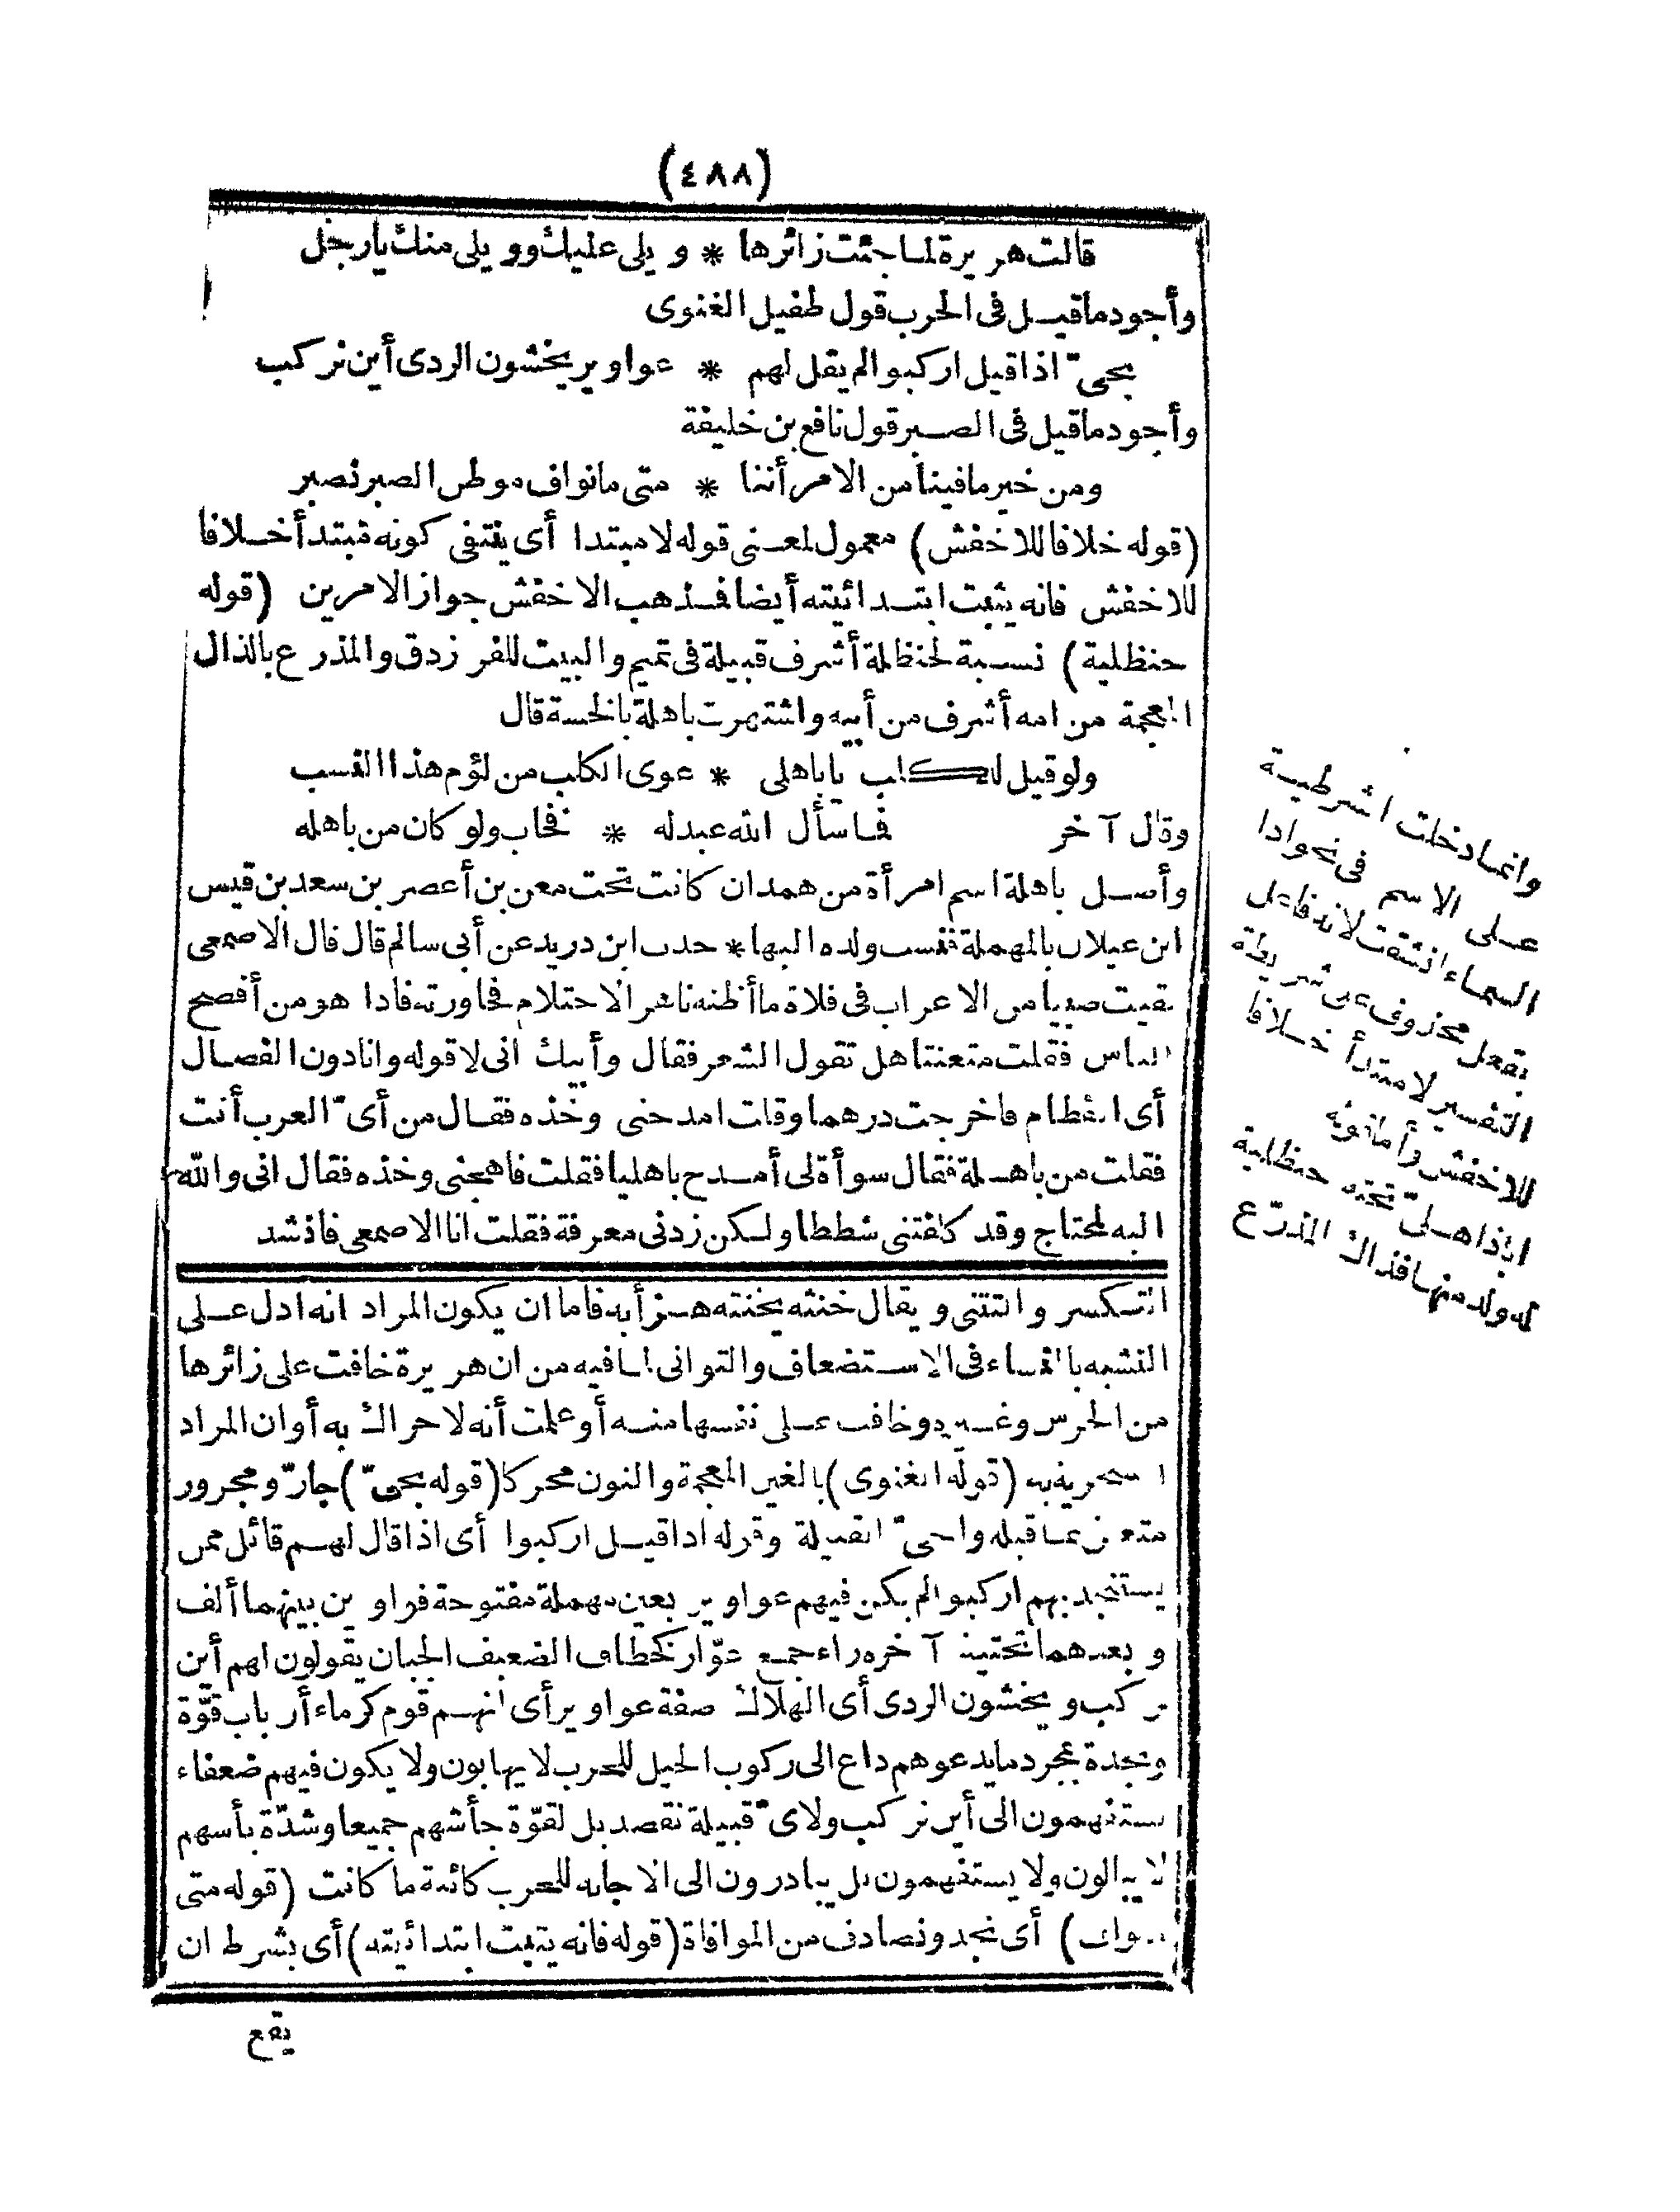 (٤٨٨)
قالت هريرة لما جئت زائرها * ويلى عليك وويلى منك يا رجل
وأجود ما قيل فى الحرب قول طفيل الغنوى
بحىّ اذا قيل اركبوا لم يقل لهم * عواوير يخشون الردى أين نركب
وأجود ما قيل فى الصبر قول نافع بن خليفة
ومن خير ما فينا من الامر أننا * متى ما نواف موطن الصبر نصبر
(قوله خلافا للاخفش) معمول لمعنى قوله لا مبتدا أى ينتفى كونه مبتدأ خلافا
للاخفش فانه يثبت ابتدائيته أيضا فمذهب الاخفش جواز الامرين (قوله
حنظلية) نسبة لحنظلة أشرف قبيلة فى تميم والبيت للفرزدق والمذرع بالذال
المعجمة من امه أشرف من أبيه واشتهرت باهلة بالخسة قال
ولو قيل للكلب يا باهلى * عوى الكلب من لؤم هذا النسب
وقال آخر فما سأل الله عبد له * فخاب ولو كان من باهله
وأصل باهلة اسم امرأة من همدان كانت تحت معن بن أعصر بن سعد بن قيس
ابن عيلان بالمهملة فنسب ولده اليها * حدث ابن دريد عن أبى سالم قال قال الاصمعى
لقيت صبيا من الاعراب فى فلاة ما أظنه ناهز الاحتلام فحاورته فاذا هو من أفصح
الناس فقلت متعنتا هل تقول الشعر فقال وأبيك انى لاقوله وانا دون الفصال
أى الفطام فاخرجت درهما وقلت امدحنى وخذه فقال من أىّ العرب أنت
فقلت من باهلة فقال سوأة لى أمدح باهليا فقلت فاهجنى وخذه فقال انى والله
اليه لمحتاج وقد كلفتنى شططا ولكن زدنى معرفة فقلت انا الاصمعى فانشد
وانما دخلت الشرطية
على الاسم فى نحو اذا
السماء انشقت لانه فاعل
بفعل محذوف على شريطة
التفسير لا مبتدأ خلافا
للاخفش وأما قوله
اذا باهلىّ تحته حنظلية
له ولد منها فذاك المذرّع
التكسر والتثنى ويقال خنثه يخنثه هزأ به فاما ان يكون المراد انه ادل على
التشبه بالنساء فى الاستضعاف والتوانى لما فيه من ان هريرة خافت على زائرها
من الحرس وغيره وخافت على نفسها منه أو علمت أنه لا حراك به أو ان المراد
السخرية به (قوله الغنوى) بالغين المعجمة والنون محركا (قوله بحىّ) جارّ ومجرور
متعلق بما قبله والحىّ القبيلة وقوله اذا قيل اركبوا أى اذا قال لهم قائل ممن
يستنجد بهم اركبوا لم يكن فيهم عواوير بعين مهملة مفتوحة فواوين بينهما ألف
وبعدهما تحتية آخره راء جمع عوّار كخطاف الضعيف الجبان يقولون لهم أين
نركب ويخشون الردى أى الهلاك صفة عواوير أى انهم قوم كرماء أرباب قوّة
ونجدة بمجرد ما يدعوهم داع الى ركوب الخيل للحرب لا يهابون ولا يكون فيهم ضعفاء
يستفهمون الى أين نركب ولاىّ قبيلة نقصد بل لقوّة جأشهم جميعا وشدّة بأسهم
لا يبالون ولا يستفهمون بل يبادرون الى الاجابة للحرب كائنة ما كانت (قوله متى
نواف) أى نجد ونصادف من الموافاة (قوله فانه يثبت ابتدائيته) أى بشرط ان
يقع